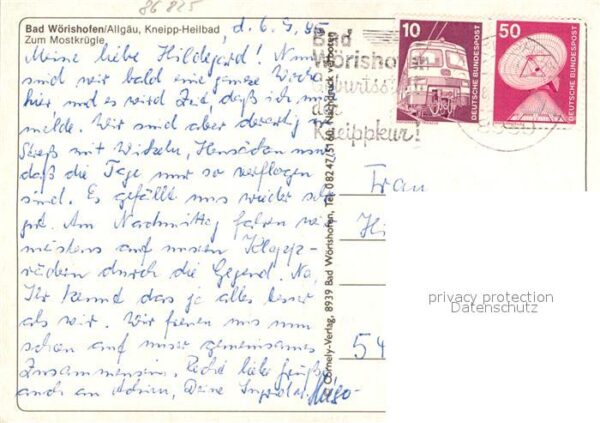 86 825
Bad Wörishofen/Allgäu, Kneipp-Heilbad
Zum Mostkrügle
d. 6. 9.
Meine liebe Hildegard! Nun
sind wir bald eine ganze Woche
hier und es wird Zeit, daß ich mich
melde. Wir sind aber derartig im
Streß mit Wickeln, Heusäcken usw.
daß die Tage nur so verflogen
sind. Es gefällt uns wieder sehr
gut. Am Nachmittag fahren wir
meistens auf unseren Klapp-
rädern durch die Gegend. Na,
Ihr kennt das ja alles besser
als wir. Wir freuen uns nun
schon auf unser gemeinsames
Zusammensein. Recht liebe Grüße
auch an Adrian, Deine Ingrid
Cornely-Verlag, 8939 Bad Wörishofen, Tel. 08247/5160, Nachdruck verboten
Bad
Wörishofen
Geburtsstätte
der
Kneippkur!
10
DEUTSCHE BUNDESPOST
50
DEUTSCHE BUNDESPOST
Frau
Hi
54
privacy protection
Datenschutz